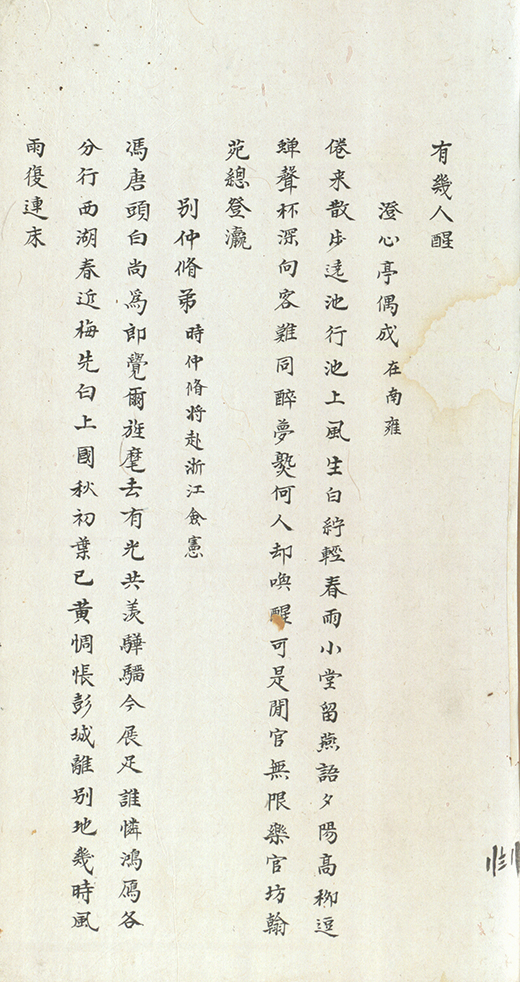 有幾人醒
澄心亭偶成在南雍
倦来散步遶池行池上風生白紵輕春雨小堂留燕語夕陽高柳逗
蟬聲杯深向客難同醉夢熟何人却喚醒可是閒官無限樂官坊翰
苑總登瀛
別仲脩弟時仲脩将赴浙江僉憲
馮唐頭白尚爲郎覺爾旌麾去有光共羡驊騮今展足誰憐鴻鴈各
分行西湖春近梅先白上國秋初葉已黄惆悵彭城離別地幾時風
雨復連床